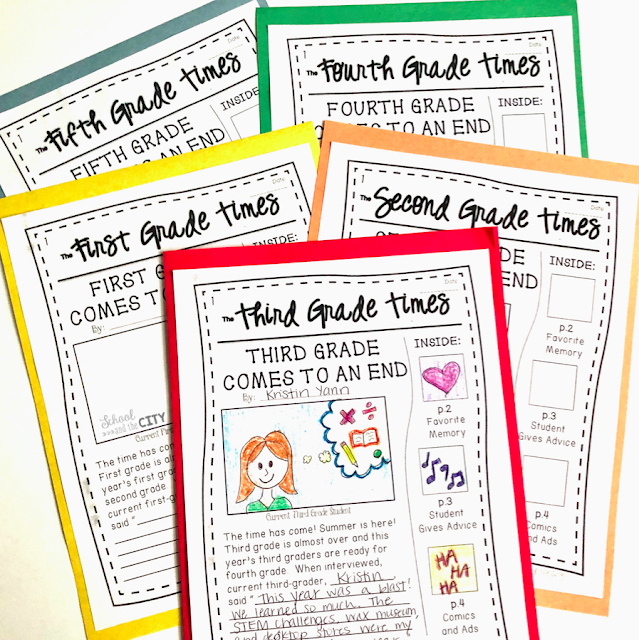 Date:
The Fifth Grade Times
FIFTH GRADE
COMES TO AN END
INSIDE:
The Fourth Grade Times
FOURTH GRADE
COMES TO AN END
INSIDE:
Date:
The First Grade Times
FIRST
COMES TO
By:
INSIDE:
School
and the CITY
The time has come!
First grade is
year's first
second grade
current first-
said "
Date:
The Second Grade Times
INSIDE:
p.2
Favorite
Memory
p.3
Student
Gives Advice
p.4
Comics
and Ads
Date:
The Third Grade Times
THIRD GRADE
COMES TO AN END
By: Kristin Yann
Current Third Grade Student
The time has come! Summer is here!
Third grade is almost over and this
year's third graders are ready for
fourth grade. When interviewed,
current third-grader, Kristin,
said "This year was a blast!
We learned so much. The
STEM challenges, wax museum,
and desktop stores were my
year
INSIDE:
p.2
Favorite
Memory
p.3
Student
Gives Advice
HA
HA
HA
p.4
Comics
and Ads